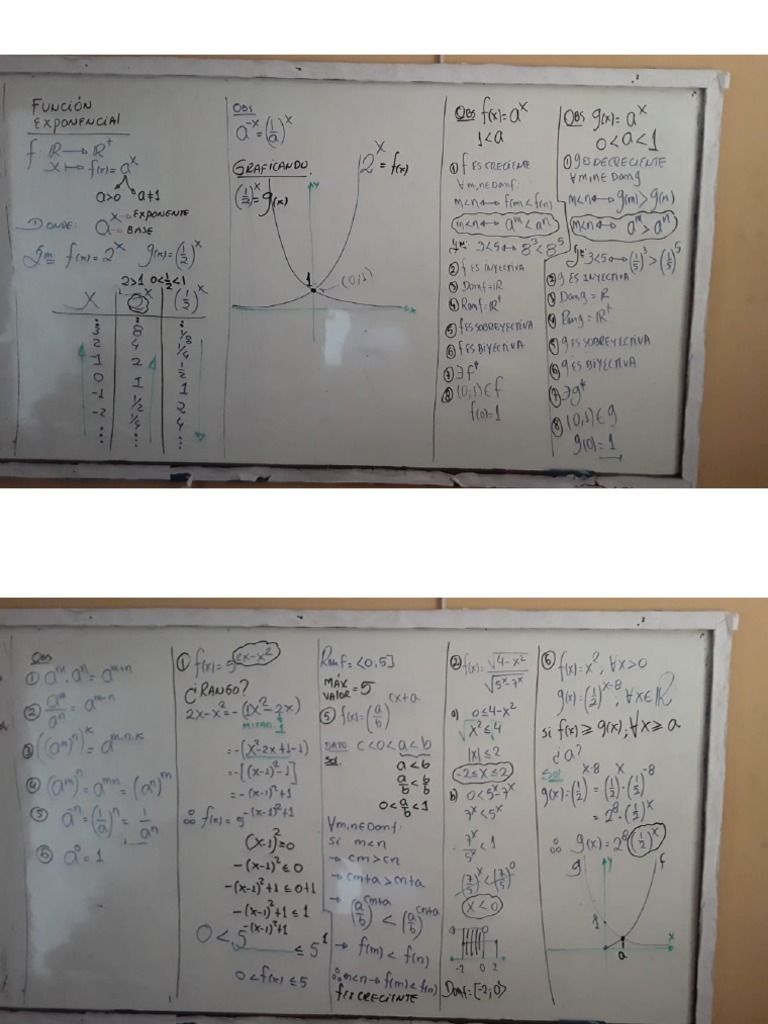 FUNCIÓN
EXPONENCIAL
f: ℝ → ℝ⁺
x ↦ f(x) = aˣ
a>0 a≠1
DONDE: aˣ → EXPONENTE
→ BASE
f(x) = 2ˣ g(x) = (1/2)ˣ
2>1 0<1/2<1
x 2ˣ (1/2)ˣ
⋮ ⋮ ⋮
3 8 1/8
2 4 1/4
1 2 1/2
0 1 1
-1 1/2 2
-2 1/4 4
⋮ ⋮ ⋮
OBS
a⁻ˣ = (1/a)ˣ
GRAFICANDO.
2ˣ = f(x)
(1/2)ˣ = g(x)
y
1
(0,1)
x
OBS f(x) = aˣ
1<a
① f ES CRECIENTE
∀ m,n ∈ Dom f:
m<n ↔ f(m)<f(n)
m<n ↔ aᵐ < aⁿ
3<5 ↔ 8³ < 8⁵
② f ES INYECTIVA
③ Dom f = ℝ
④ Ran f = ℝ⁺
⑤ f ES SOBREYECTIVA
⑥ f ES BIYECTIVA
⑦ ∃ f*
⑧ (0,1) ∈ f
f(0) = 1
OBS g(x) = aˣ
0<a<1
① g ES DECRECIENTE
∀ m,n ∈ Dom g
m<n ↔ g(m)>g(n)
m<n ↔ aᵐ > aⁿ
3<5 ↔ (1/5)³ > (1/5)⁵
② g ES INYECTIVA
③ Dom g = ℝ
④ Rang = ℝ⁺
⑤ g ES SOBREYECTIVA
⑥ g ES BIYECTIVA
⑦ ∃ g*
⑧ (0,1) ∈ g
g(0) = 1
OBS
① aᵐ.aⁿ = aᵐ⁺ⁿ
② aᵐ/aⁿ = aᵐ⁻ⁿ
③ ((aᵐ)ⁿ)ᵏ = aᵐ·ⁿ·ᵏ
④ (aᵐ)ⁿ = aᵐⁿ = (aⁿ)ᵐ
⑥ a⁰ = 1
① f(x) = 5^(2x-x²)
¿RANGO?
2x-x² = -(1x²-2x)
MITAD: 1
= -(x²-2x+1-1)
= -[(x-1)²-1]
= -(x-1)²+1
∴ f(x) = 5^(-(x-1)²+1)
(x-1)² ≥ 0
-(x-1)² ≤ 0
-(x-1)²+1 ≤ 0+1
-(x-1)²+1 ≤ 1
0 < 5^(-(x-1)²+1) ≤ 5¹
0 < f(x) ≤ 5
Ran f = <0,5]
MÁX
VALOR = 5
⑤ f(x) = (a/b)^(cx+a)
DATO c<0<a<b
Sol.
a<b
a/b < b/b
0 < a/b < 1
∀ m,n ∈ Dom f:
si m<n
→ cm>cn
→ cm+a>cn+a
→ (a/b)^(cm+a) < (a/b)^(cn+a)
→ f(m) < f(n)
∴ m<n → f(m)<f(n)
f ES CRECIENTE
② f(x) = √(4-x²)/√(5ˣ-7ˣ)
a) 0 ≤ 4-x²
√x² ≤ √4
|x| ≤ 2
-2 ≤ x ≤ 2
b) 0 < 5ˣ-7ˣ
7ˣ < 5ˣ
7ˣ/5ˣ < 1
(7/5)ˣ < (7/5)⁰
x<0
-2 0 2
Dom f = [-2;0>
⑥ f(x) = x², ∀ x>0
g(x) = (1/2)^(x-8), ∀ x ∈ ℝ
si f(x) ≥ g(x), ∀ x ≥ a
¿a?
Sol
g(x) = (1/2)^(x-8) = (1/2)ˣ.(1/2)⁻⁸
= 2⁸.(1/2)ˣ
∴ g(x) = 2⁸(1/2)ˣ
g f
1
a
x